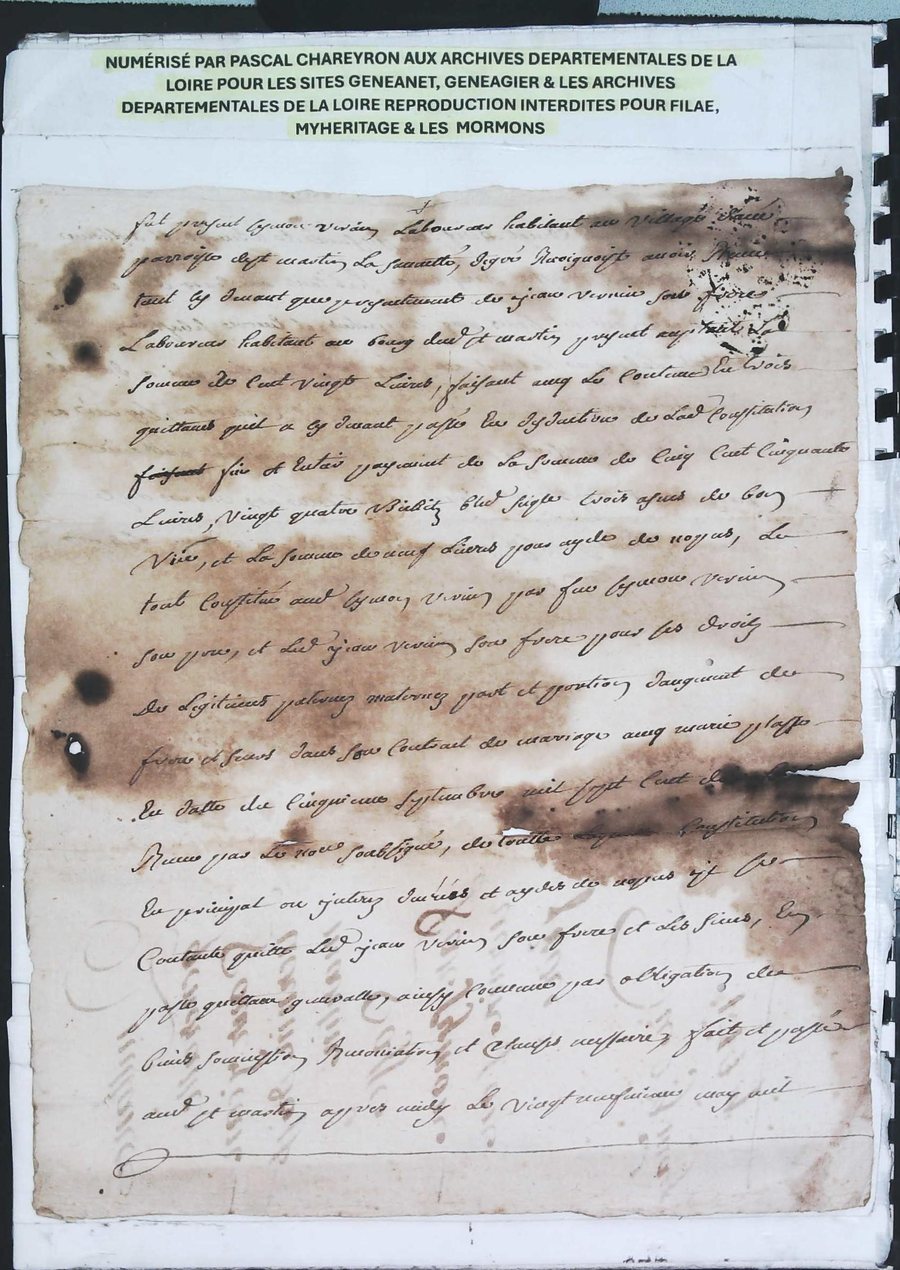 NUMÉRISÉ PAR PASCAL CHAREYRON AUX ARCHIVES DEPARTEMENTALES DE LA
LOIRE POUR LES SITES GENEANET, GENEAGIER & LES ARCHIVES
DEPARTEMENTALES DE LA LOIRE REPRODUCTION INTERDITES POUR FILAE,
MYHERITAGE & LES MORMONS
fut present symon virin Laboureur habitant au village
parroisse de st martin La sauveté, de gré Recognoist avoir
tant cy devant que presentement de jean virin son frere
Laboureur habitant au bourg dud st martin present acceptant La
somme de Cent vingt Livres, faisant avec Le Contenu En trois
quittances quil a cy devant passé En deduction de Lad Constitution
fin et Entier payement de La somme de Cinq Cent Cinquante
Livres, vingt quatre Bichetz bled seigle trois asnés de bon
Vin, et La somme de neuf Livres pour ayde de nopces, Le
tout Constitué aud symon virin par feu symon virin
son pere, et Led jean virin son frere pour ses droitz
De Legitimes paternez maternez part et portion daugment de
frere et seurs dans son Contract de mariage avec marie plasse
En datte du Cinquieme septembre mil sept Cent
Receu par Le nore soubsigné, de toutte Constitution
En principal ou interez danrées et aydes de nopces il se
Contante quitte Led jean virin son frere et Les siens, En
passe quittance generalle, ainsy Convenu par obligation de
biens soumission Renonciation et Clauses necessaires, fait et passé
aud st martin appres midy Le vingt neufvieme may mil